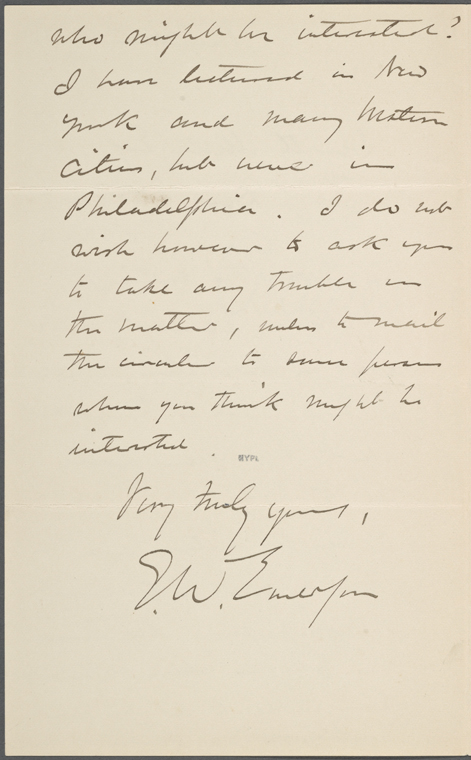 who might be interested?
I have lectured in New
York and many Western
cities, but never in
Philadelphia. I do not
wish however to ask you
to take any trouble in
the matter, unless to mail
the circular to some person
whom you think might be
interested.
NYPL
Very truly yours,
E. W. Emerson